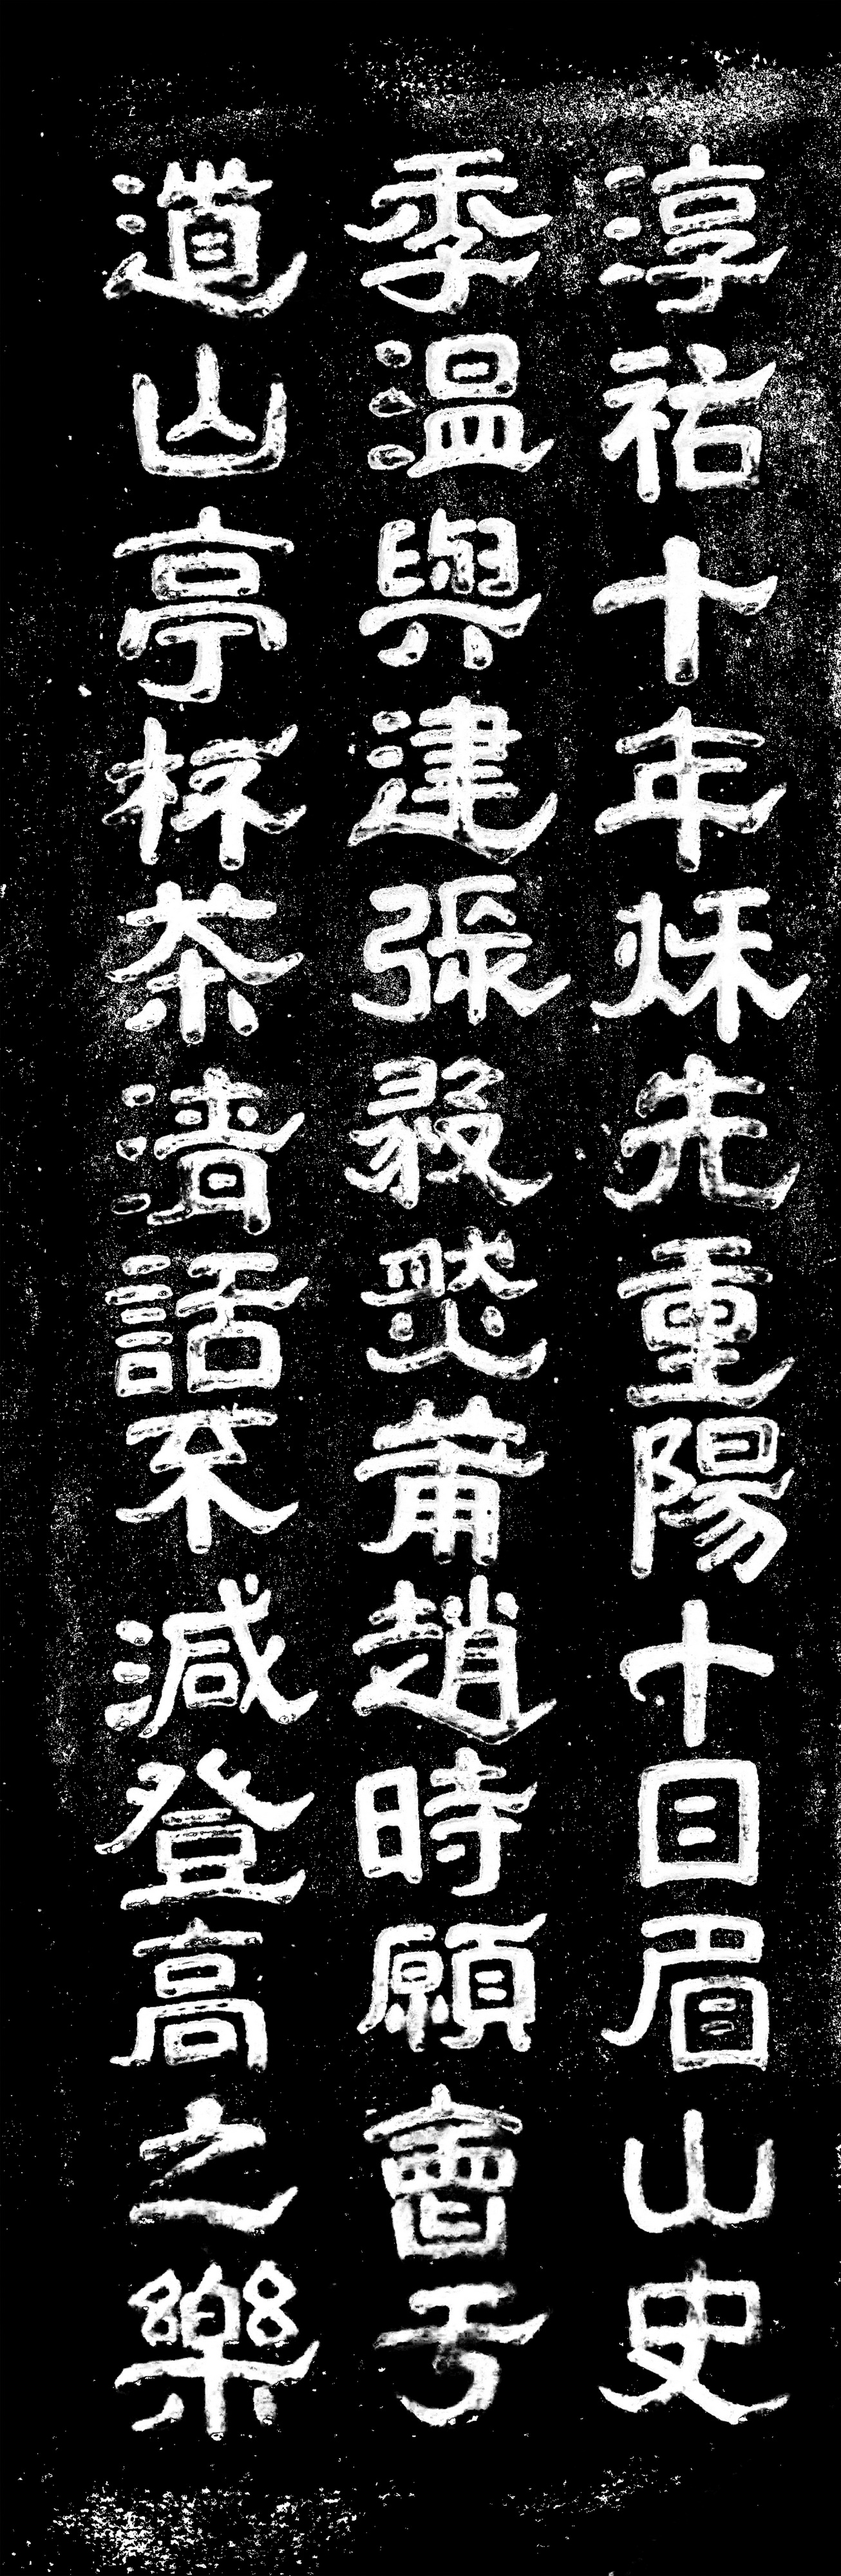 淳祐十年秌先重陽十日眉山史
季温與建張發莆趙時願會于
道山亭杯茶清話不減登高之樂